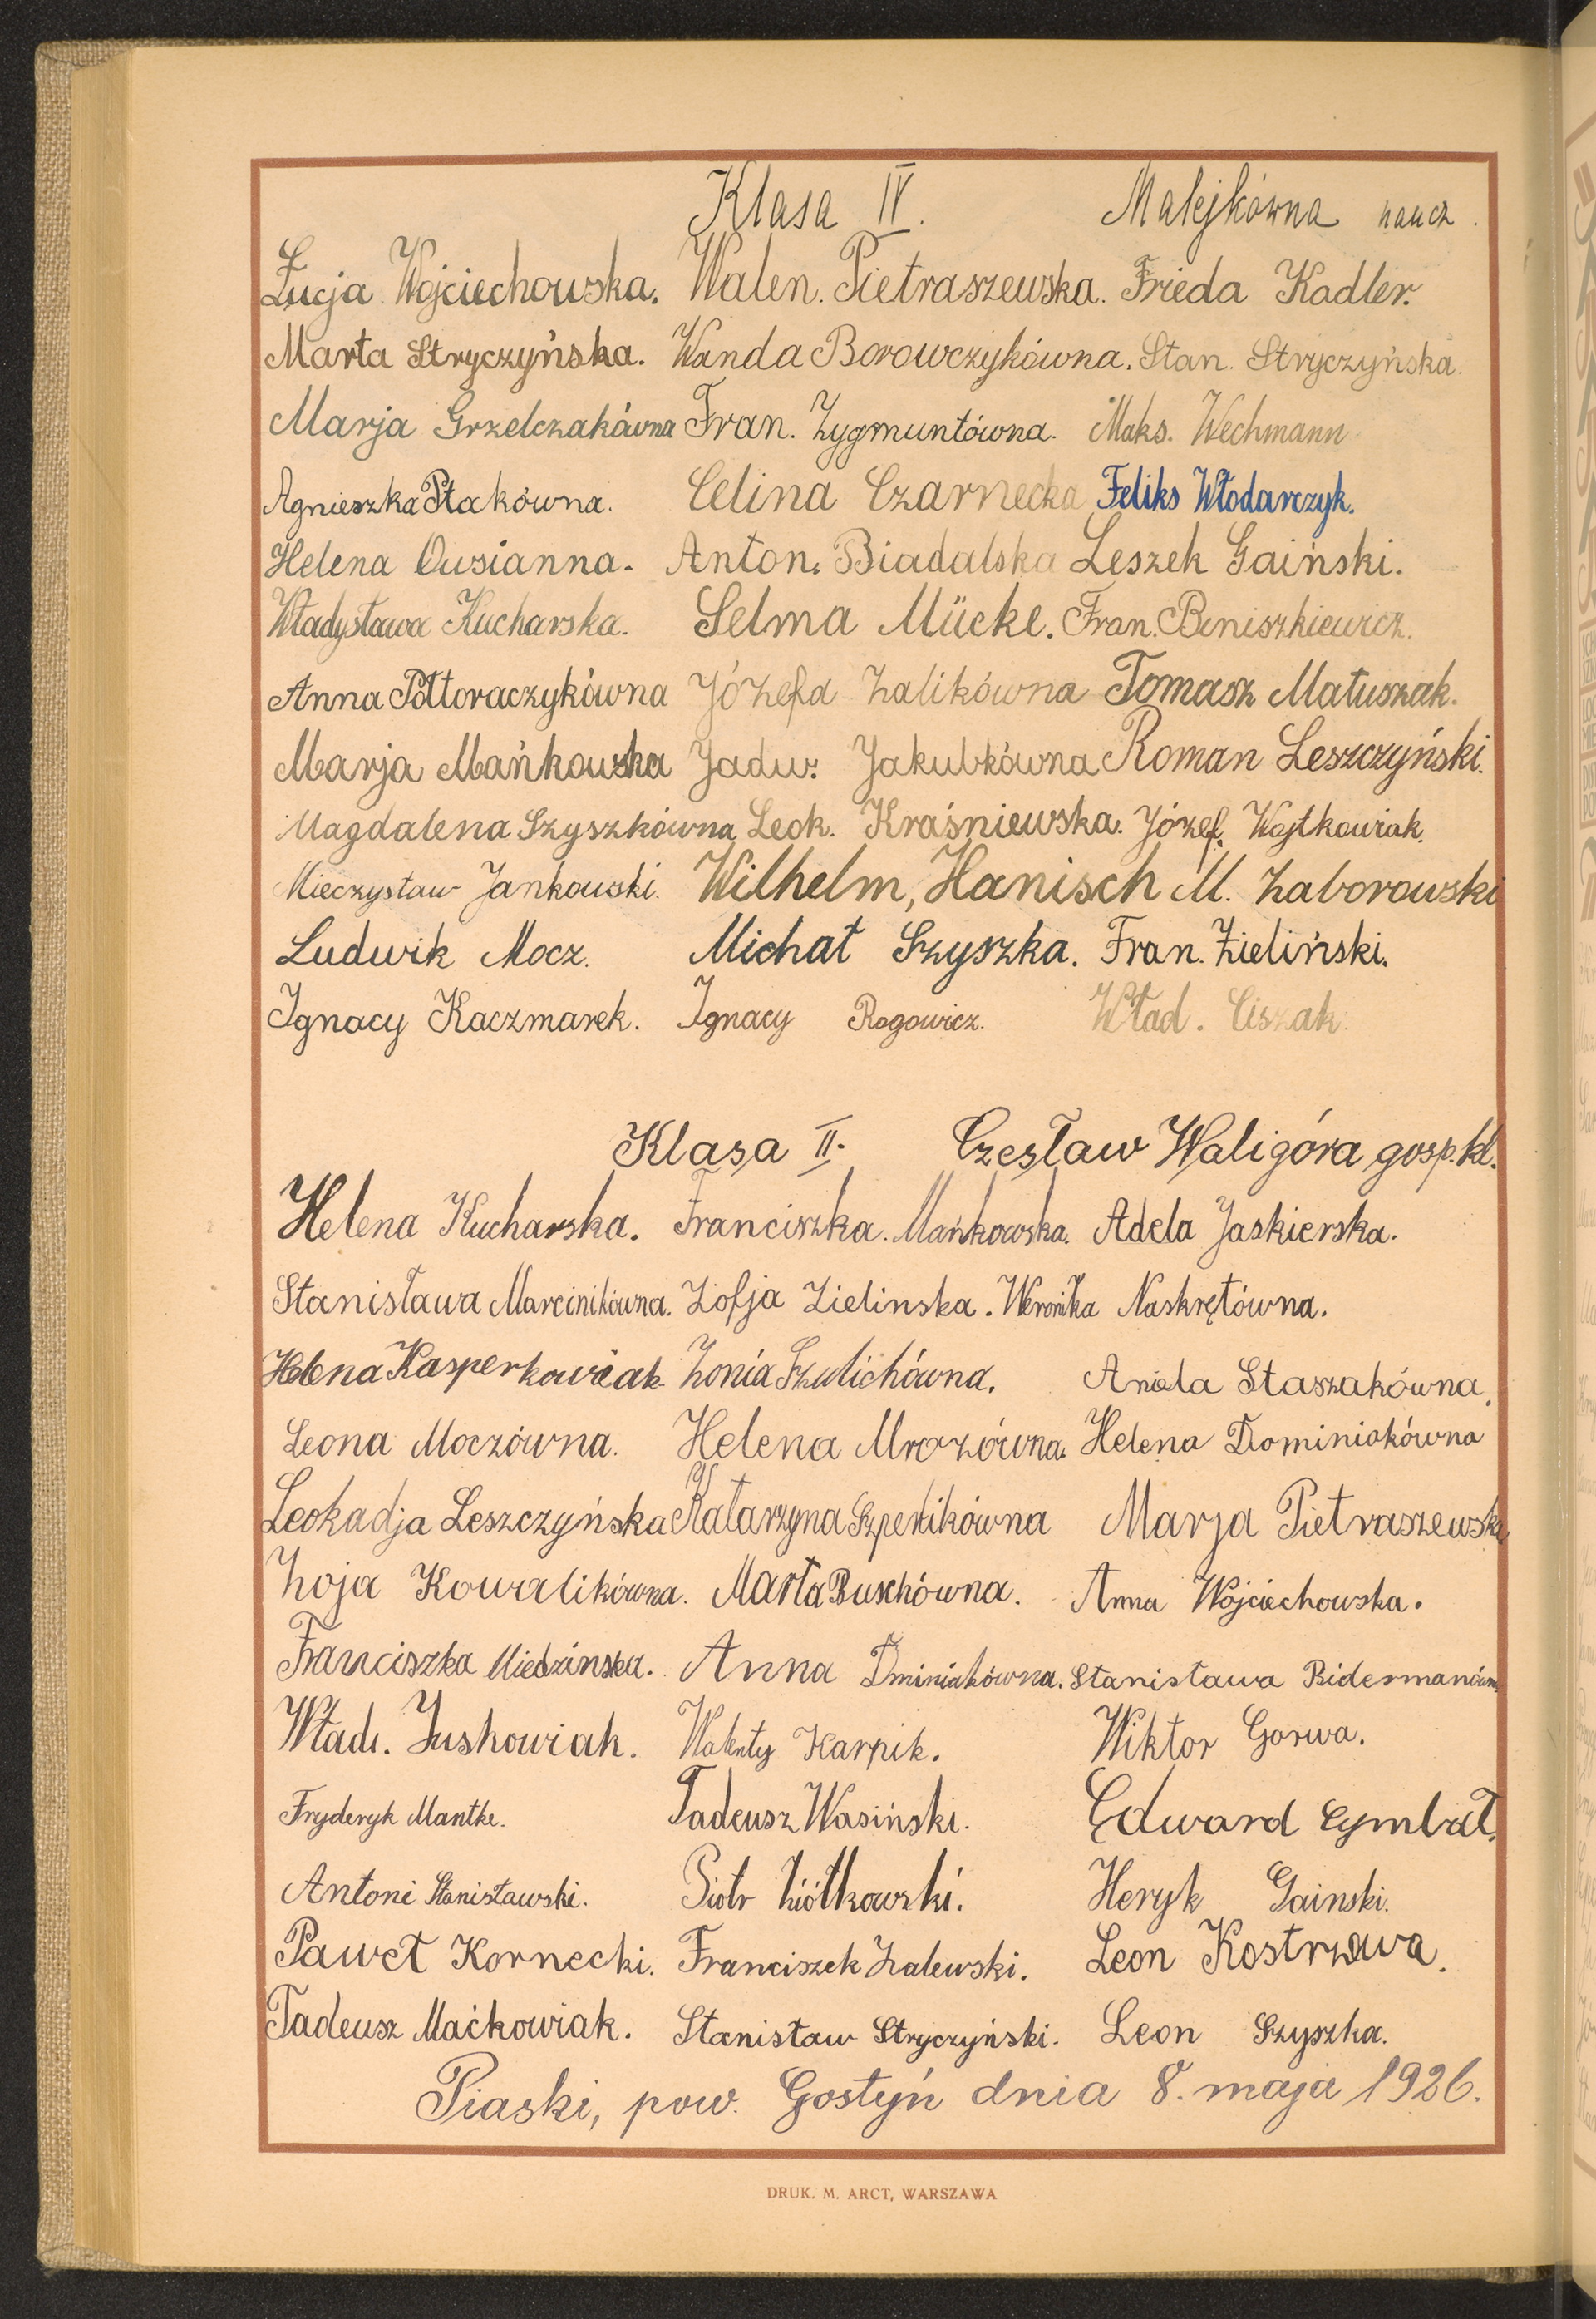 Klasa IV. Malejkówna naucz.
Łucja Wojciechowska. Walen. Pietraszewska. Frieda Kadler.
Marta Stryczyńska. Wanda Borowczykówna. Stan. Stryczyńska.
Marja Grzelczakówna Fran. Zygmuntówna. Maks. Wechmann
Agnieszka Ptakówna. Celina Czarnecka Feliks Włodarczyk.
Helena Owsianna. Anton. Biadalska Leszek Gaiński.
Władysława Kucharska. Selma Mücke. Fran. Beniszkiewicz.
Anna Półtoraczykówna Józefa Zalikówna Tomasz Matuszak.
Marja Mańkowska Jadw. Jakubkówna Roman Leszczyński.
Magdalena Szyszkówna Leok. Kraśniewska. Józef. Wojtkowiak.
Mieczysław Jankowski. Wilhelm, Hanisch M. Zaborowski
Ludwik Mocz. Michał Szyszka. Fran. Zieliński.
Ignacy Kaczmarek. Ignacy Rogowicz. Wład. Ciszak.
Klasa II. Czesław Waligóra gosp. kl.
Helena Kucharska. Franciszka. Mańkowska. Adela Jaskierska.
Stanisława Marcinikówna. Zofja Zielinska. Weronika Naskrętówna.
Helena Kasperkowiak Zonia Szulichówna. Aniela Staszakówna.
Leona Moczówna. Helena Mrozówna. Helena Dominiakówna
Leokadja Leszczyńska Katarzyna Szperlikówna Marja Pietraszewska
Zoja Kowalikówna. Marta Buschówna. Anna Wojciechowska.
Franciszka Miedzinska. Anna Dminiakówna. Stanisława Bidermanówna
Wład. Juskowiak. Walenty Karpik. Wiktor Gorwa.
Fryderyk Mantke. Tadeusz Wasiński. Edward Cymbał.
Antoni Stanisławski. Piotr Ziółkowski. Heryk Gainski.
Paweł Kornecki. Franciszek Zalewski. Leon Kostrzewa.
Tadeusz Maćkowiak. Stanisław Stryczyński. Leon Szyszka.
Piaski, pow. Gostyń dnia 8. maja 1926.
DRUK. M. ARCT, WARSZAWA